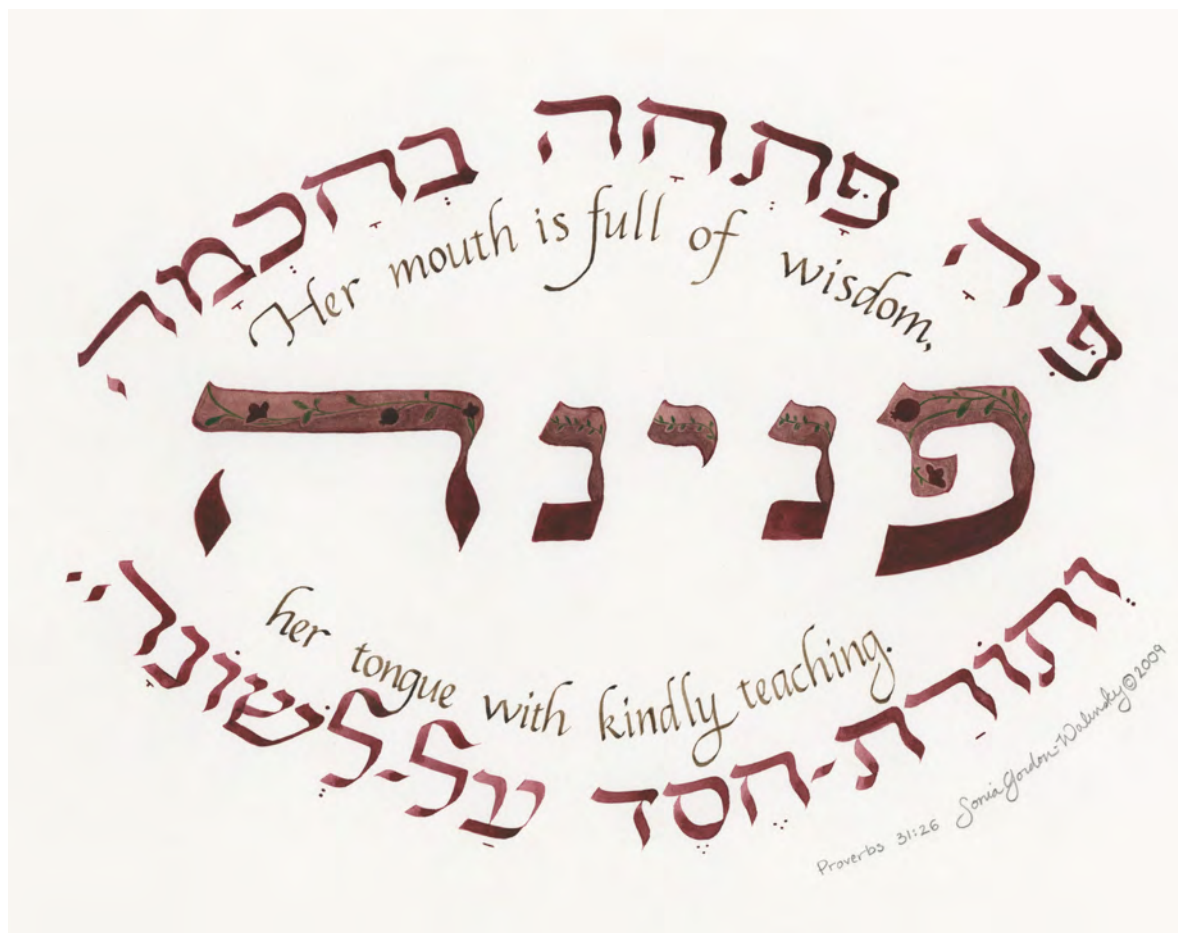 פִּיהָ פָּתְחָה בְחָכְמָה
Her mouth is full of wisdom,
פנינה
her tongue with kindly teaching.
וְתוֹרַת-חֶסֶד עַל-לְשׁוֹנָהּ
Proverbs 31:26 Sonia Gordon-Walinsky © 2009